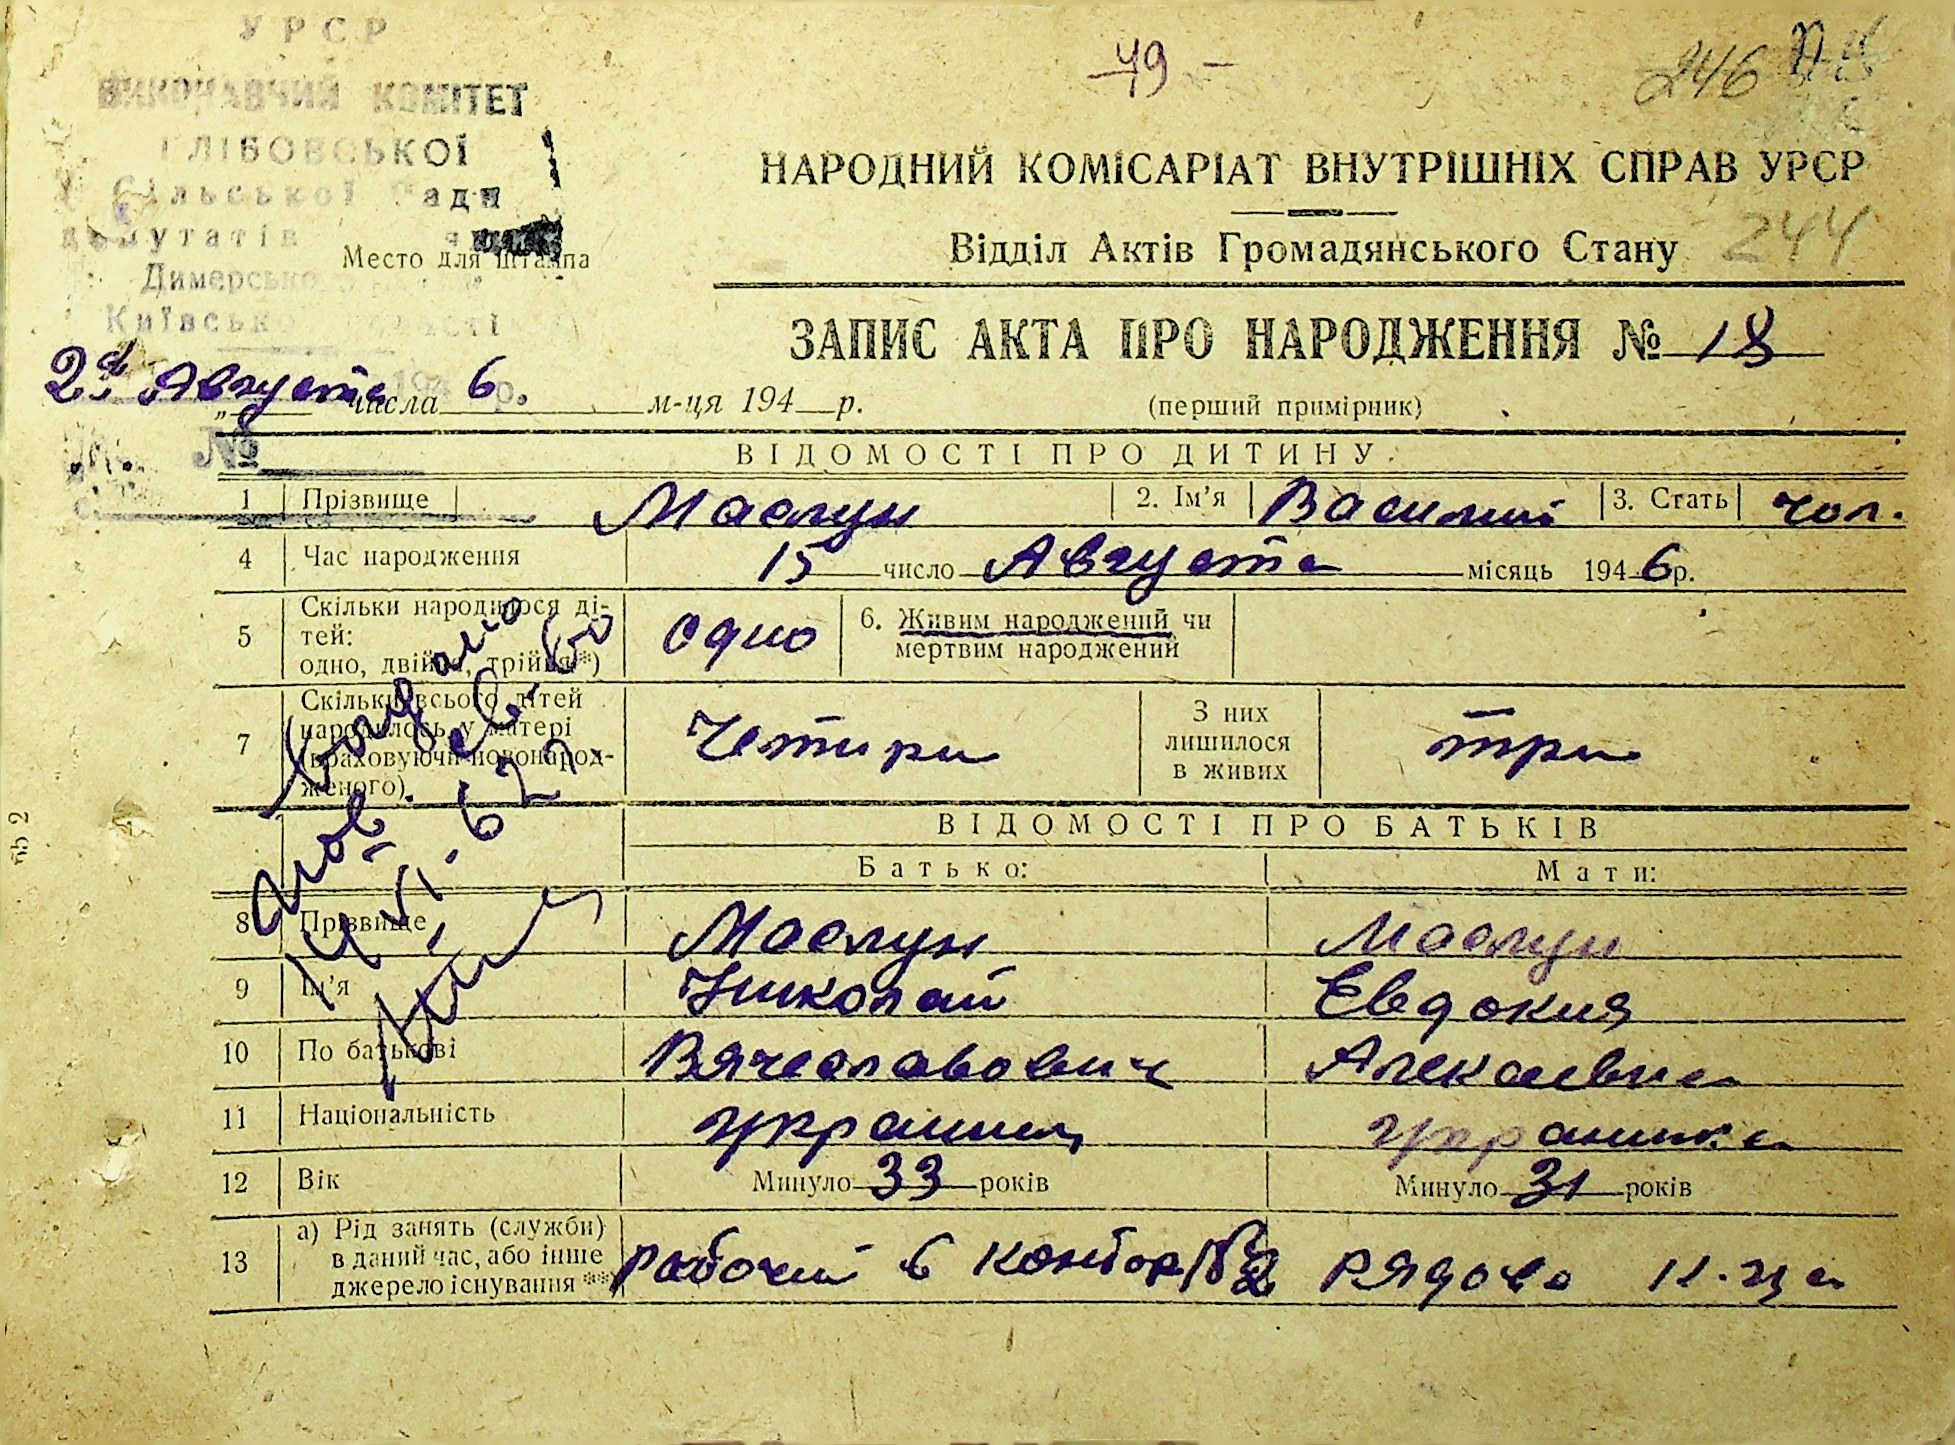 УРСР
79 -
246
ВИКОНАВЧИЙ КОМІТЕТ
ГЛІБОВСЬКОЇ
Сільської Ради
депутатів
Место для штампа
Димерського
Київської області
НАРОДНИЙ КОМІСАРІАТ ВНУТРІШНІХ СПРАВ УРСР
Відділ Актів Громадянського Стану 244
ЗАПИС АКТА ПРО НАРОДЖЕННЯ № 18
Августа числа 6 м-ця 194 р. (перший примірник)
194 р.
№
ВІДОМОСТІ ПРО ДИТИНУ
1 Прізвище Маслун 2. Ім'я Василий 3. Стать чол.
4 Час народження 15 число Августа місяць 1946 р.
5 Скільки народилося ді-
тей:
одно, двійня, трійня*) одно 6. Живим народжений чи
мертвим народжений
7 Скільки всього дітей
народилось у матері
(враховуючи новонарод-
женого). Четири З них
лишилося
в живих три
14.VI.62
ВІДОМОСТІ ПРО БАТЬКІВ
Батько: Мати:
8 Прізвище Маслун Маслун
9 Ім'я Николай Евдокия
10 По батькові Вячеславович Алексевна
11 Національність украинец украинка
12 Вік Минуло 33 років Минуло 31 років
13 а) Рід занять (служби)
в даний час, або інше
джерело існування **) рабочий в Рядова